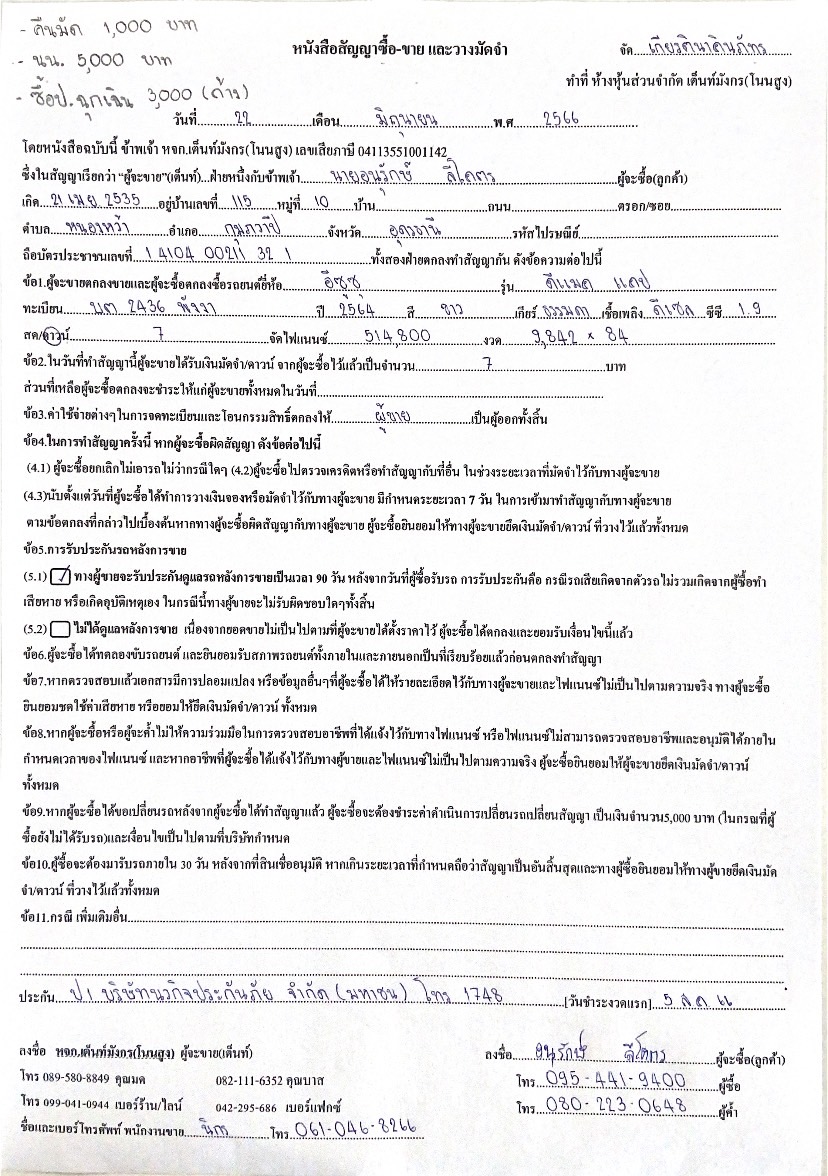 - คืนมัด 1,000 บาท
- นน. 5,000 บาท
- ซื้อป.ฉุกเฉิน 3,000 (ค้าง)
หนังสือสัญญาซื้อ-ขาย และวางมัดจำ
จัด เกียรตินาคินภัทร
ทำที่ ห้างหุ้นส่วนจำกัด เต็นท์มังกร(โนนสูง)
วันที่ 22 เดือน มิถุนายน พ.ศ 2566
โดยหนังสือฉบับนี้ ข้าพเจ้า หจก.เต็นท์มังกร(โนนสูง) เลขเสียภาษี 04113551001142
ซึ่งในสัญญาเรียกว่า "ผู้จะขาย"(เต็นท์)...ฝ่ายหนึ่งกับข้าพเจ้า นายอนุรักษ์ สีโคตร ผู้จะซื้อ(ลูกค้า)
เกิด 21 เมย 2535 อยู่บ้านเลขที่ 115 หมู่ที่ 10 บ้าน ถนน ตรอก/ซอย
ตำบล หนองหว้า อำเภอ กุมภวาปี จังหวัด อุดรธานี รหัสไปรษณีย์
ถือบัตรประชาชนเลขที่ 1 4104 00211 32 1 ทั้งสองฝ่ายตกลงทำสัญญากัน ดังข้อความต่อไปนี้
ข้อ1.ผู้จะขายตกลงขายและผู้จะซื้อตกลงซื้อรถยนต์ยี่ห้อ อีซูซุ รุ่น ดีแมค แคป
ทะเบียน บต 2436 พังงา ปี 2564 สี ขาว เกียร์ ธรรมดา เชื้อเพลิง ดีเซล ซีซี 1.9
สด/ดาวน์ 7 จัดไฟแนนซ์ 514,800 งวด 9,842 × 84
ข้อ2.ในวันที่ทำสัญญานี้ผู้จะขายได้รับเงินมัดจำ/ดาวน์ จากผู้จะซื้อไว้แล้วเป็นจำนวน 7 บาท
ส่วนที่เหลือผู้จะซื้อตกลงจะชำระให้แก่ผู้จะขายทั้งหมดในวันที่
ข้อ3.ค่าใช้จ่ายต่างๆในการจดทะเบียนและโอนกรรมสิทธิ์ตกลงให้ ผู้ขาย เป็นผู้ออกทั้งสิ้น
ข้อ4.ในการทำสัญญาครั้งนี้ หากผู้จะซื้อผิดสัญญา ดังข้อต่อไปนี้
(4.1) ผู้จะซื้อยกเลิกไม่เอารถไม่ว่ากรณีใดๆ (4.2)ผู้จะซื้อไปตรวจเครดิตหรือทำสัญญากับที่อื่น ในช่วงระยะเวลาที่มัดจำไว้กับทางผู้จะขาย
(4.3)นับตั้งแต่วันที่ผู้จะซื้อได้ทำการวางเงินจองหรือมัดจำไว้กับทางผู้จะขาย มีกำหนดระยะเวลา 7 วัน ในการเข้ามาทำสัญญากับทางผู้จะขาย
ตามข้อตกลงที่กล่าวไปเบื้องต้นหากทางผู้จะซื้อผิดสัญญากับทางผู้จะขาย ผู้จะซื้อยินยอมให้ทางผู้จะขายยึดเงินมัดจำ/ดาวน์ ที่วางไว้แล้วทั้งหมด
ข้อ5.การรับประกันรถหลังการขาย
(5.1) ทางผู้ขายจะรับประกันดูแลรถหลังการขายเป็นเวลา 90 วัน หลังจากวันที่ผู้ซื้อรับรถ การรับประกันคือ กรณีรถเสียเกิดจากตัวรถไม่รวมเกิดจากผู้ซื้อทำ
เสียหาย หรือเกิดอุบัติเหตุเอง ในกรณีนี้ทางผู้ขายจะไม่รับผิดชอบใดๆทั้งสิ้น
(5.2) ไม่ได้ดูแลหลังการขาย เนื่องจากยอดขายไม่เป็นไปตามที่ผู้จะขายได้ตั้งราคาไว้ ผู้จะซื้อได้ตกลงและยอมรับเงื่อนไขนี้แล้ว
ข้อ6.ผู้จะซื้อได้ทดลองขับรถยนต์ และยินยอมรับสภาพรถยนต์ทั้งภายในและภายนอกเป็นที่เรียบร้อยแล้วก่อนตกลงทำสัญญา
ข้อ7.หากตรวจสอบแล้วเอกสารมีการปลอมแปลง หรือข้อมูลอื่นๆที่ผู้จะซื้อได้ให้รายละเอียดไว้กับทางผู้จะขายและไฟแนนซ์ไม่เป็นไปตามความจริง ทางผู้จะซื้อ
ยินยอมชดใช้ค่าเสียหาย หรือยอมให้ยึดเงินมัดจำ/ดาวน์ ทั้งหมด
ข้อ8.หากผู้จะซื้อหรือผู้จะค้ำไม่ให้ความร่วมมือในการตรวจสอบอาชีพที่ได้แจ้งไว้กับทางไฟแนนซ์ หรือไฟแนนซ์ไม่สามารถตรวจสอบอาชีพและอนุมัติได้ภายใน
กำหนดเวลาของไฟแนนซ์ และหากอาชีพที่ผู้จะซื้อได้แจ้งไว้กับทางผู้ขายและไฟแนนซ์ไม่เป็นไปตามความจริง ผู้จะซื้อยินยอมให้ผู้จะขายยึดเงินมัดจำ/ดาวน์
ทั้งหมด
ข้อ9.หากผู้จะซื้อได้ขอเปลี่ยนรถหลังจากผู้จะซื้อได้ทำสัญญาแล้ว ผู้จะซื้อจะต้องชำระค่าดำเนินการเปลี่ยนรถเปลี่ยนสัญญา เป็นเงินจำนวน5,000 บาท (ในกรณีที่ผู้
ซื้อยังไม่ได้รับรถ)และเงื่อนไขเป็นไปตามที่บริษัทกำหนด
ข้อ10.ผู้ซื้อจะต้องมารับรถภายใน 30 วัน หลังจากที่สินเชื่ออนุมัติ หากเกินระยะเวลาที่กำหนดถือว่าสัญญาเป็นอันสิ้นสุดและทางผู้ซื้อยินยอมให้ทางผู้ขายยึดเงินมัด
จำ/ดาวน์ ที่วางไว้แล้วทั้งหมด
ข้อ11.กรณี เพิ่มเติมอื่น
ประกัน ป1 บริษัทนวกิจประกันภัย จำกัด (มหาชน) โทร 1748 [วันชำระงวดแรก] 5 ส.ค 66
ลงชื่อ หจก.เต็นท์มังกร(โนนสูง) ผู้จะขาย(เต็นท์)
ลงชื่อ อนุรักษ์ สีโคตร ผู้จะซื้อ(ลูกค้า)
โทร 089-580-8849 คุณมด 082-111-6352 คุณบาส
โทร 095-441-9400 ผู้ซื้อ
โทร 099-041-0944 เบอร์ร้าน/ไลน์ 042-295-686 เบอร์แฟกซ์
โทร 080-223-0648 ผู้ค้ำ
ชื่อและเบอร์โทรศัพท์ พนักงานขาย นิกร โทร 061-046-8266